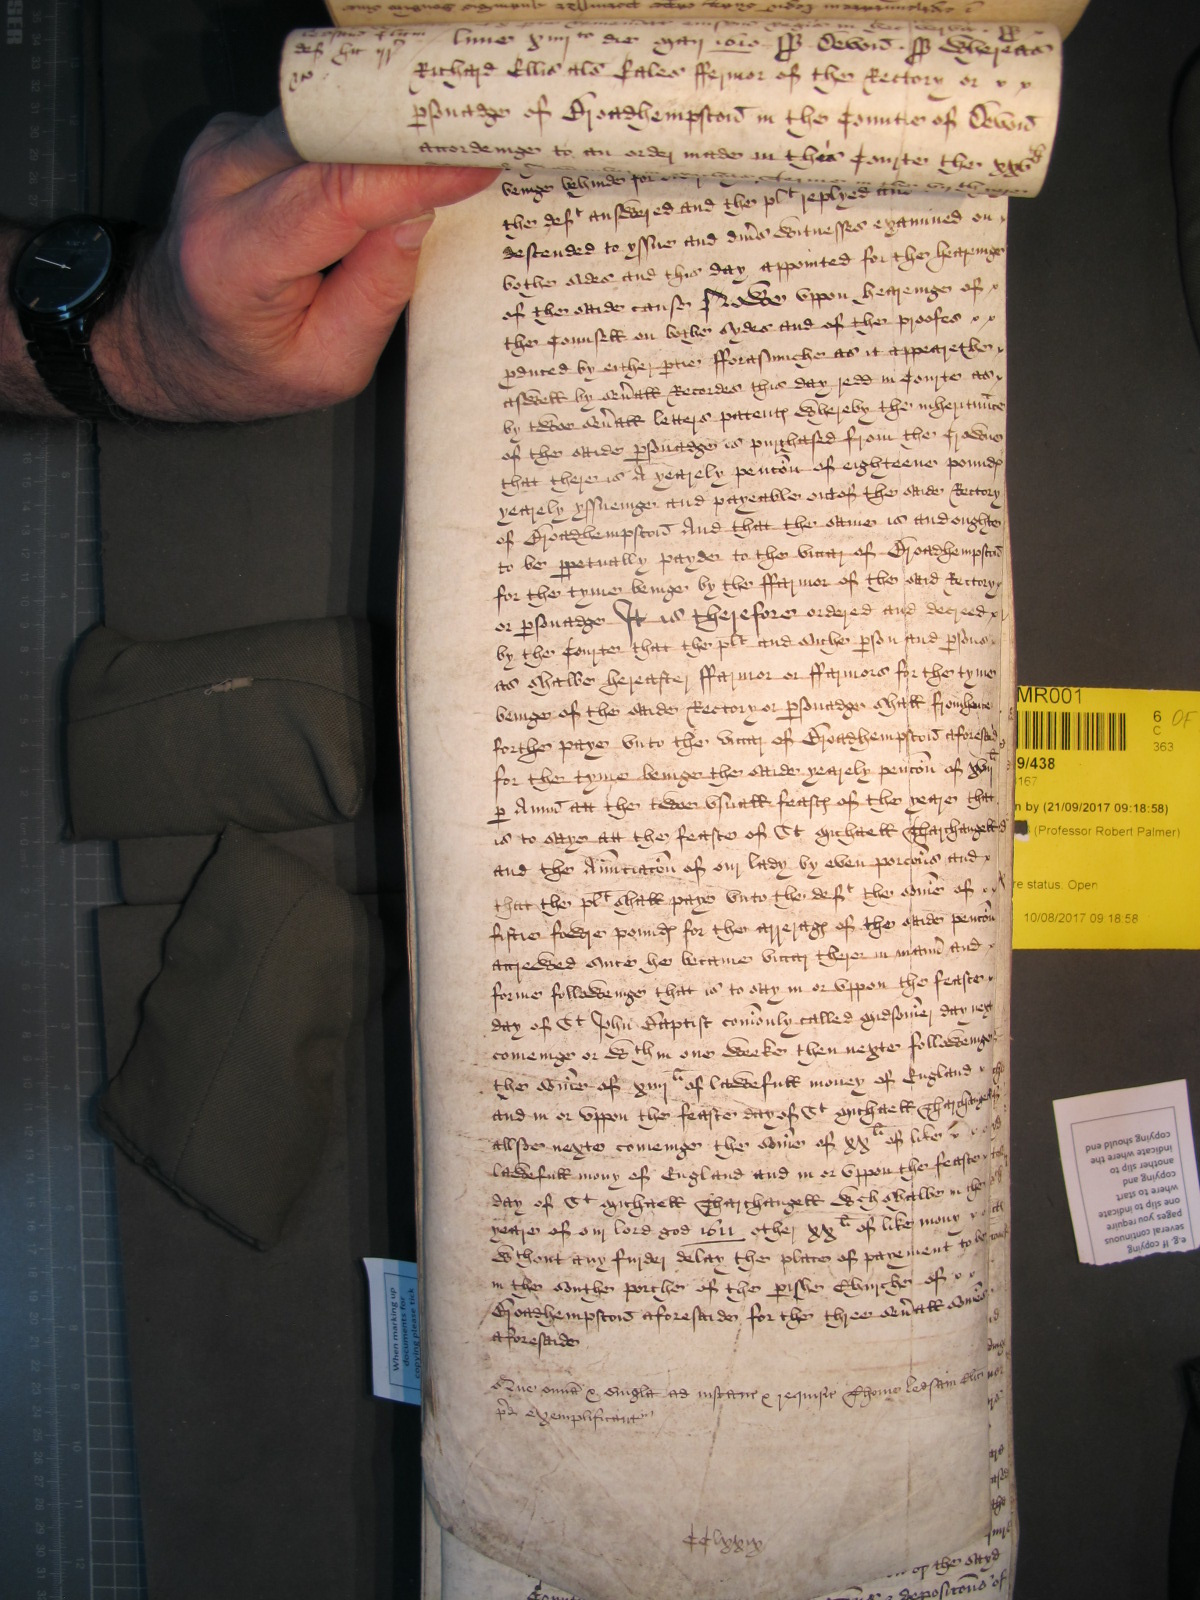 def hic iij
lune xiiijto die Maij 1610 Devon Whereas
Richard Ellis als Eales ffermor of the Rectory or
psonadge of Broadhempston in the Countie of Devon
accordinge to an order made in this Courte the xxvth
beinge behinde for
the deft answered and the plt replyed and
descended to yssue and divs witnesses examined on
bothe sides and this day appointed for the hearinge
of the saide cause Nowe vppon hearinge of
the Counsell on bothe sydes and of the proofes
pduced by either ptie fforasmuche as it appearethe
aswell by sevall Recordes this day redd in Courte as
by twoe sevall letters patents whereby the inheritance
of the saide psonadge is purchased from the Crowne
that there is A yearely pencon of eighteene pounds
yearely yssueinge and payeable out of the saide Rectory
of Broadhempston And that the same is and oughte
to be ppetually payde to the viccar of Broadhempston
for the tyme beinge by the ffarmor of the said Rectory
or psonadge It is therefore ordered and decreed
by the Courte that the plt and suche pson and psons
as shalbe hereafter ffarmor or ffarmors for the tyme
beinge of the saide Rectory or psonadge shall from hence
forthe paye vnto the viccar of Broadhempston aforesaid
for the tyme beinge the saide yearely pencon of xviijli
p Annu att the twoe vsuall feasts of the yeare that
is to saye att the feaste of St Michaell Tharchangell
and the Annuciacon of our lady by even porcons and
that the plt shall paye vnto the deft the some of
fiftie fowre pounds for the arrerags of the saide pencon
accrewed since he became viccar there in mann and
forme followeinge that is to say in or vppon the feaste
day of St John Baptist comonly called Midsomer day next
comeinge or wthin one weeke then nexte followeinge
the some of xiiijli of lawefull money of England
and in or vppon the feaste day of St Michaell Tharchangell
allsoe nexte comeinge the some of xxli of like
lawefull mony of England and in or vppon the feaste
day of St Michaell Tharchangell wch shalbe in the
yeare of our lord god 1611 other xxli of like mony
wthout any furder delay the place of payement to be
in the southe porche of the pishe Churche of
Broadhempston aforesaide for the three sevall somes
aforesaide
Que omia & singla ad instanc & requisic Thome
pd Exemplificant
CClxxix
of the sayd
depositons of
MR001
6 OF
C
363
9/438
167
n by (21/09/2017 09:18:58)
(Professor Robert Palmer)
re status: Open
10/08/2017 09:18:58
e.g. If copying
several continuous
pages you require
one slip to indicate
where to start
copying and
another slip to
indicate where the
copying should end
When marking up
documents for
copying please tick